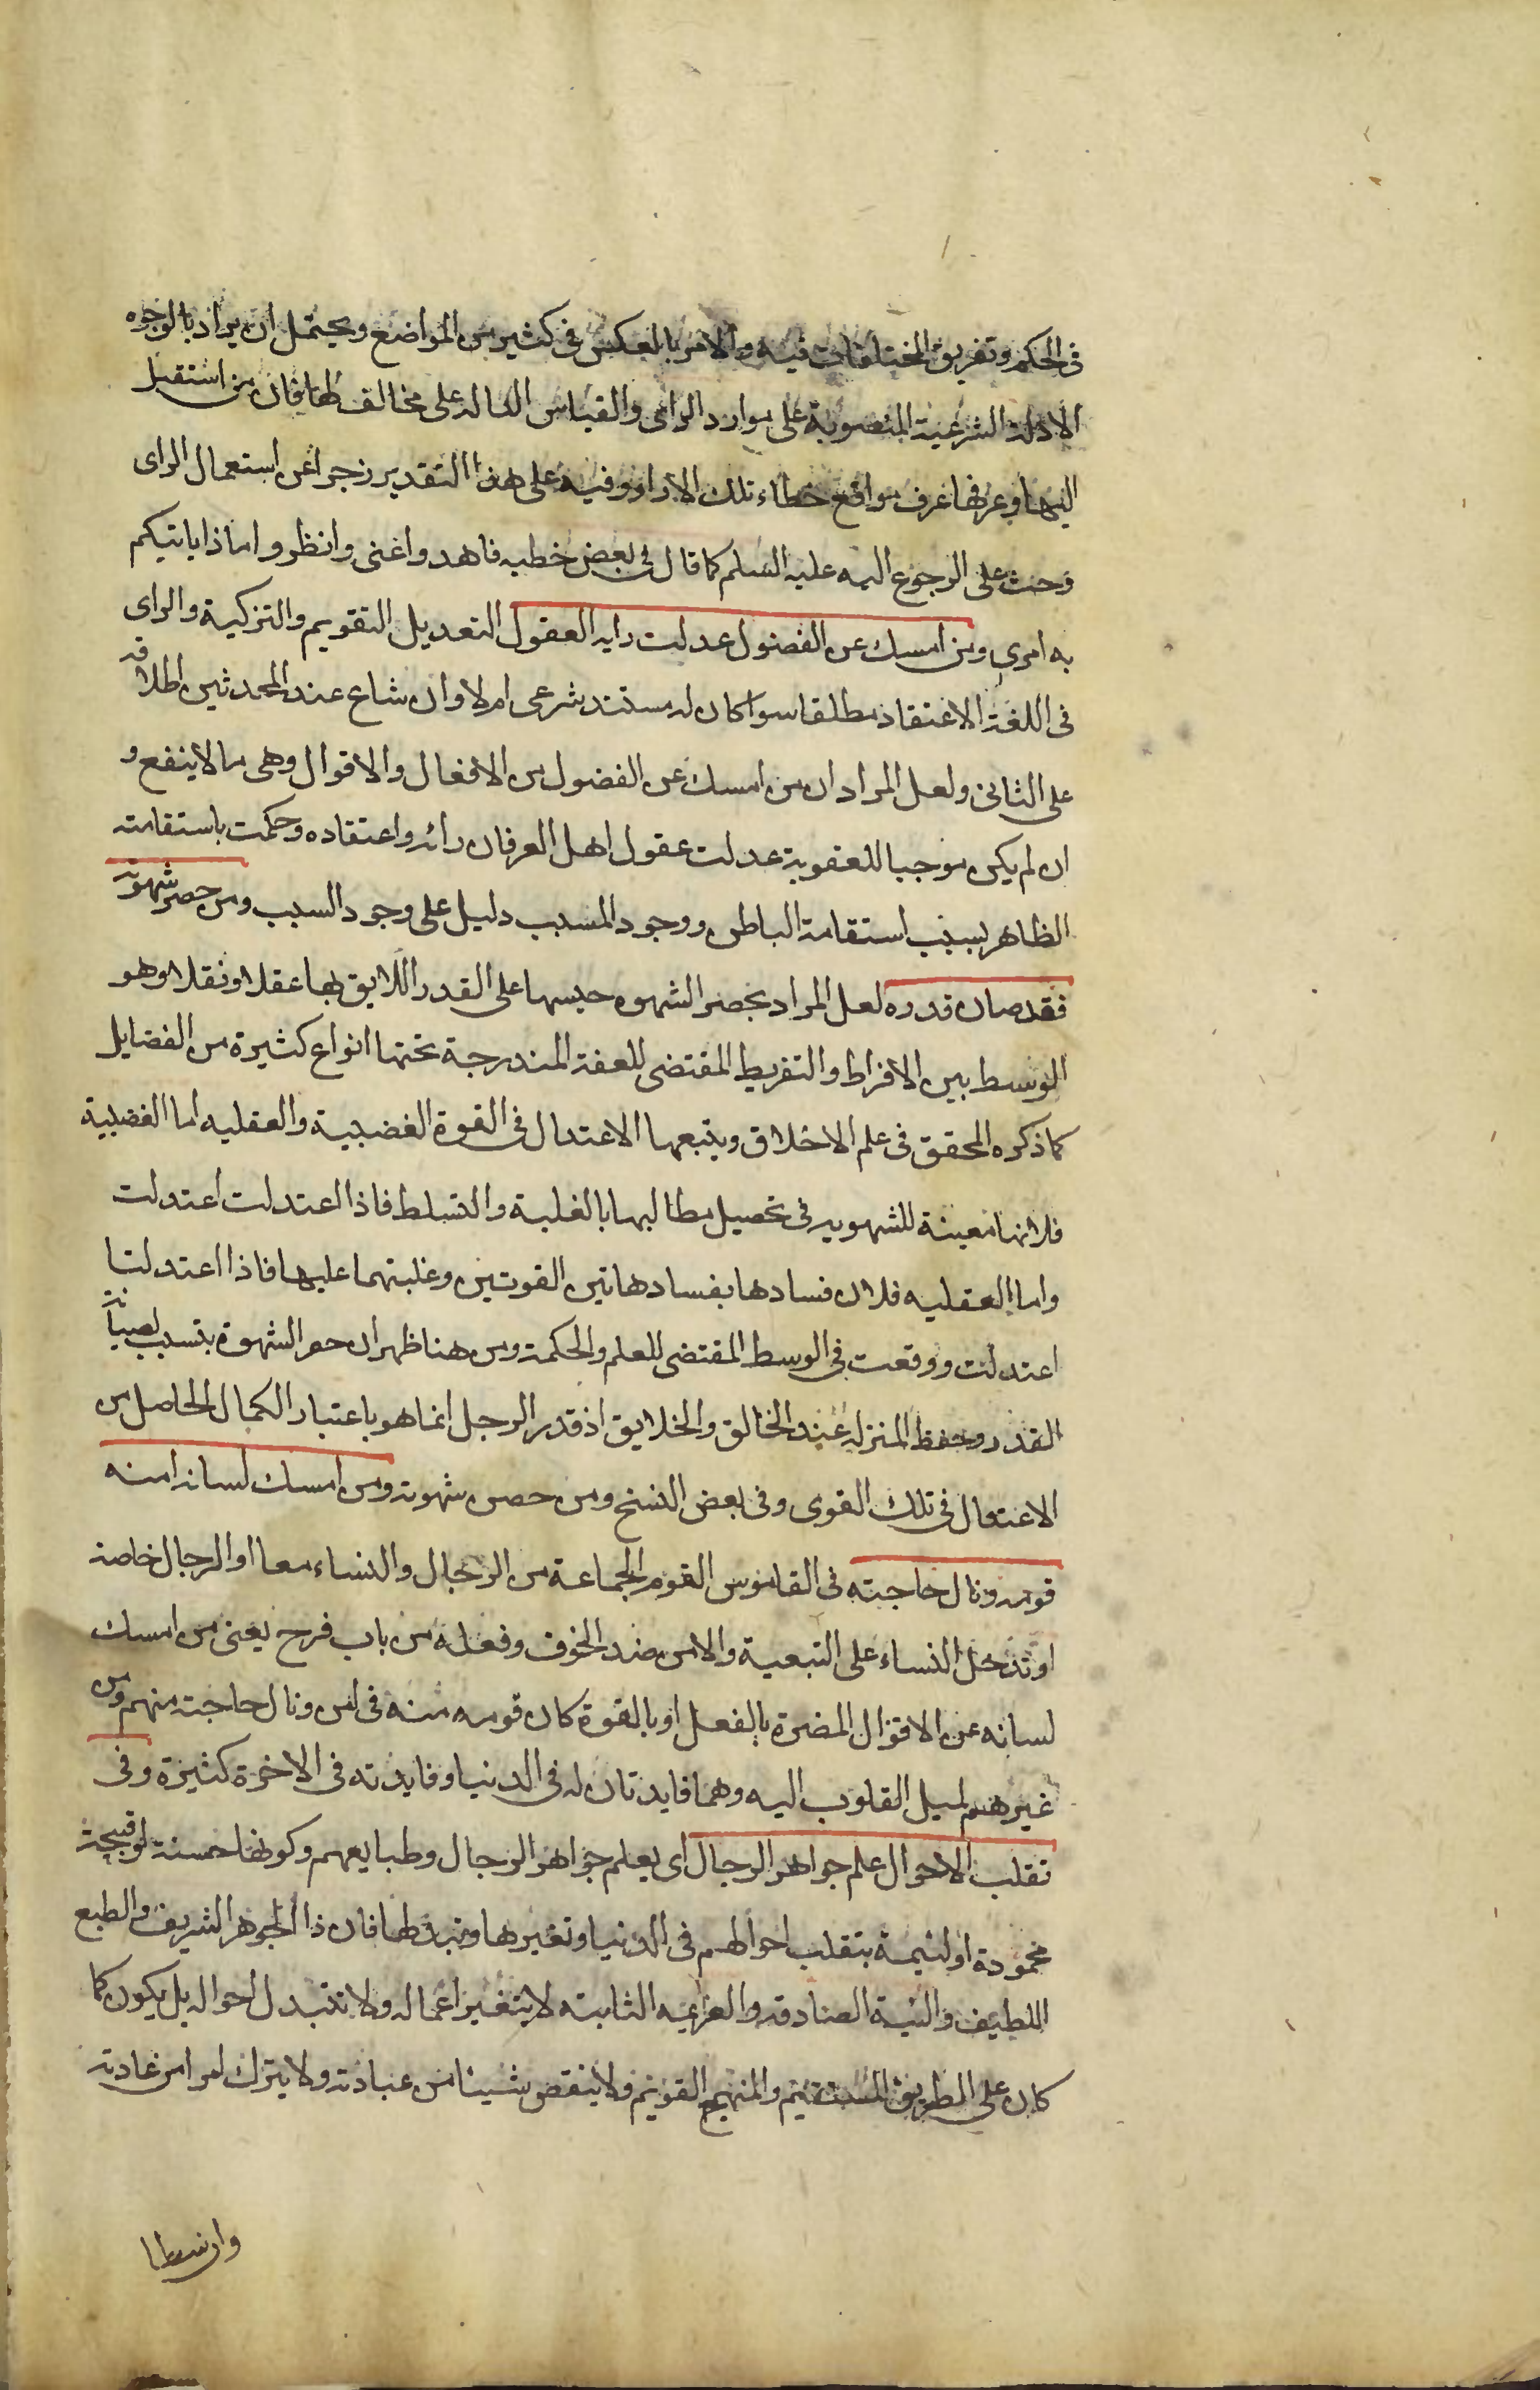 فى الحكم وتفريق المختلفات فيه والامر بالعكس فى كثير من المواضع ويحتمل ان يراد بالوجوه
الادلة الشرعية المنصوبة على موارد الراى والقياس الدالة على مخالف لها فان من استقبل
اليها وعرفها عرف مواقع خطاء تلك الاراء وفيه على هذا التقدير زجر عن استعمال الراى
وحث على الرجوع اليه عليه السلم كما قال فى بعض خطبه فاهدوا عنى وانظروا ماذا ياتيكم
به امرى ومن امسك عن الفضول عدلت رايه العقول التعديل التقويم والتزكية والراى
فى اللغة الاعتقاد مطلقا سواء كان له مستند شرعى ام لا وان شاع عند المحدثين اطلاقه
على الثانى ولعل المراد ان من امسك عن الفضول من الافعال والاقوال وهى ما لا ينفع و
ان لم يكن موجبا للعقوبة عدلت عقول اهل العرفان رائه واعتقاده وحكمت باستقامته
الظاهر بسبب استقامة الباطن ووجود المسبب دليل على وجود السبب ومن حصر شهوته
فقد صان قدره لعل المراد بحصر الشهوه حبسها على القدر اللايق بها عقلا ونقلا وهو
الوسط بين الافراط والتفريط المقتضى للعفة المندرجة تحتها انواع كثيرة من الفضايل
كما ذكره المحقق فى علم الاخلاق ويتبعها الاعتدال فى القوة الغضبية والعقليه اما الغضبية
فلانها معينة للشهويه فى تحصيل مطالبها بالغلبة والتسلط فاذا اعتدلت اعتدلت
واما العقليه فلان فسادها بفساد هاتين القوتين وغلبتهما عليها فاذا اعتدلتا
اعتدلت ووقعت فى الوسط المقتضى للعلم والحكمة ومن هنا ظهر ان حصر الشهوة بتسبب لصيانة
القدر وحفظ المنزله عند الخالق والخلايق اذ قدر الرجل انما هو باعتبار الكمال الحاصل من
الاعتدال فى تلك القوى وفى بعض النسخ ومن حصن شهوته ومن امسك لسانه امنه
قومه ونال حاجته فى القاموس القوم الجماعة من الرجال والنساء معا او الرجال خاصة
او تدخل النساء على التبعية والامن ضد الخوف وفعله من باب فرح يعنى من امسك
لسانه عن الاقوال المضرة بالفعل او بالقوة كان قومه منه فى امن ونال حاجته منهم ومن
غيرهم لميل القلوب اليه وهما فايدتان له فى الدنيا وفايدته فى الاخرة كثيرة وفى
تقلب الاحوال علم جواهر الرجال اى يعلم جواهر الرجال وطبايعهم وكونها حسنة او قبيحة
محمودة او لئيمة بتقلب احوالهم فى الدنيا وتغيرها وتبدلها فان ذا الجوهر الشريف والطبع
اللطيف والنية الصادقه والعزيمه الثابته لا يتغير اعماله ولا تتبدل احواله بل يكون كما
كان على الطريق المستقيم والمنهج القويم ولا ينقص شيئا من عبادته ولا يترك امرا من عادته